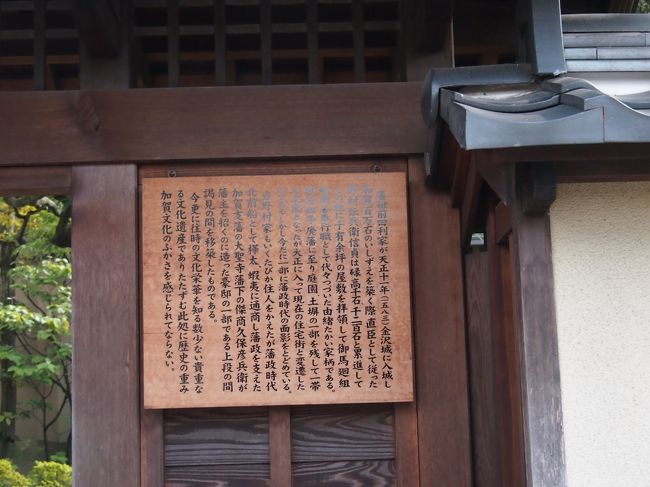 藩祖前田利家が天正十一年(一五八三)金沢城に入城し
加賀百万石のいしずえを築く際直臣として従った
野村伝兵衛信貞は禄高千石千二百石と累進して
この地に千有余坪の屋敷を拝領して御馬廻組
組頭各奉行職として代々つづいた由緒たかい家柄である。
廃藩に至り庭園土塀の一部を残して一帯
が大正に入って現在の住宅街と変遷した
しかし今だに一部に藩政時代の面影をとどめている。
野村家もいくたびか住人をかえたが藩政時代
北前船として樺太、蝦夷に通商し藩政を支えた
加賀支藩の大聖寺藩下の傑商久保彦兵衛が
藩主を招くのに造った豪邸の一部である上段の間
謁見の間を移築したものである。
今更に往時の文化栄華を知る数少ない貴重な
る文化遺産でありたたずむ此処に歴史の重み
加賀文化のふかさを感じられてならない。